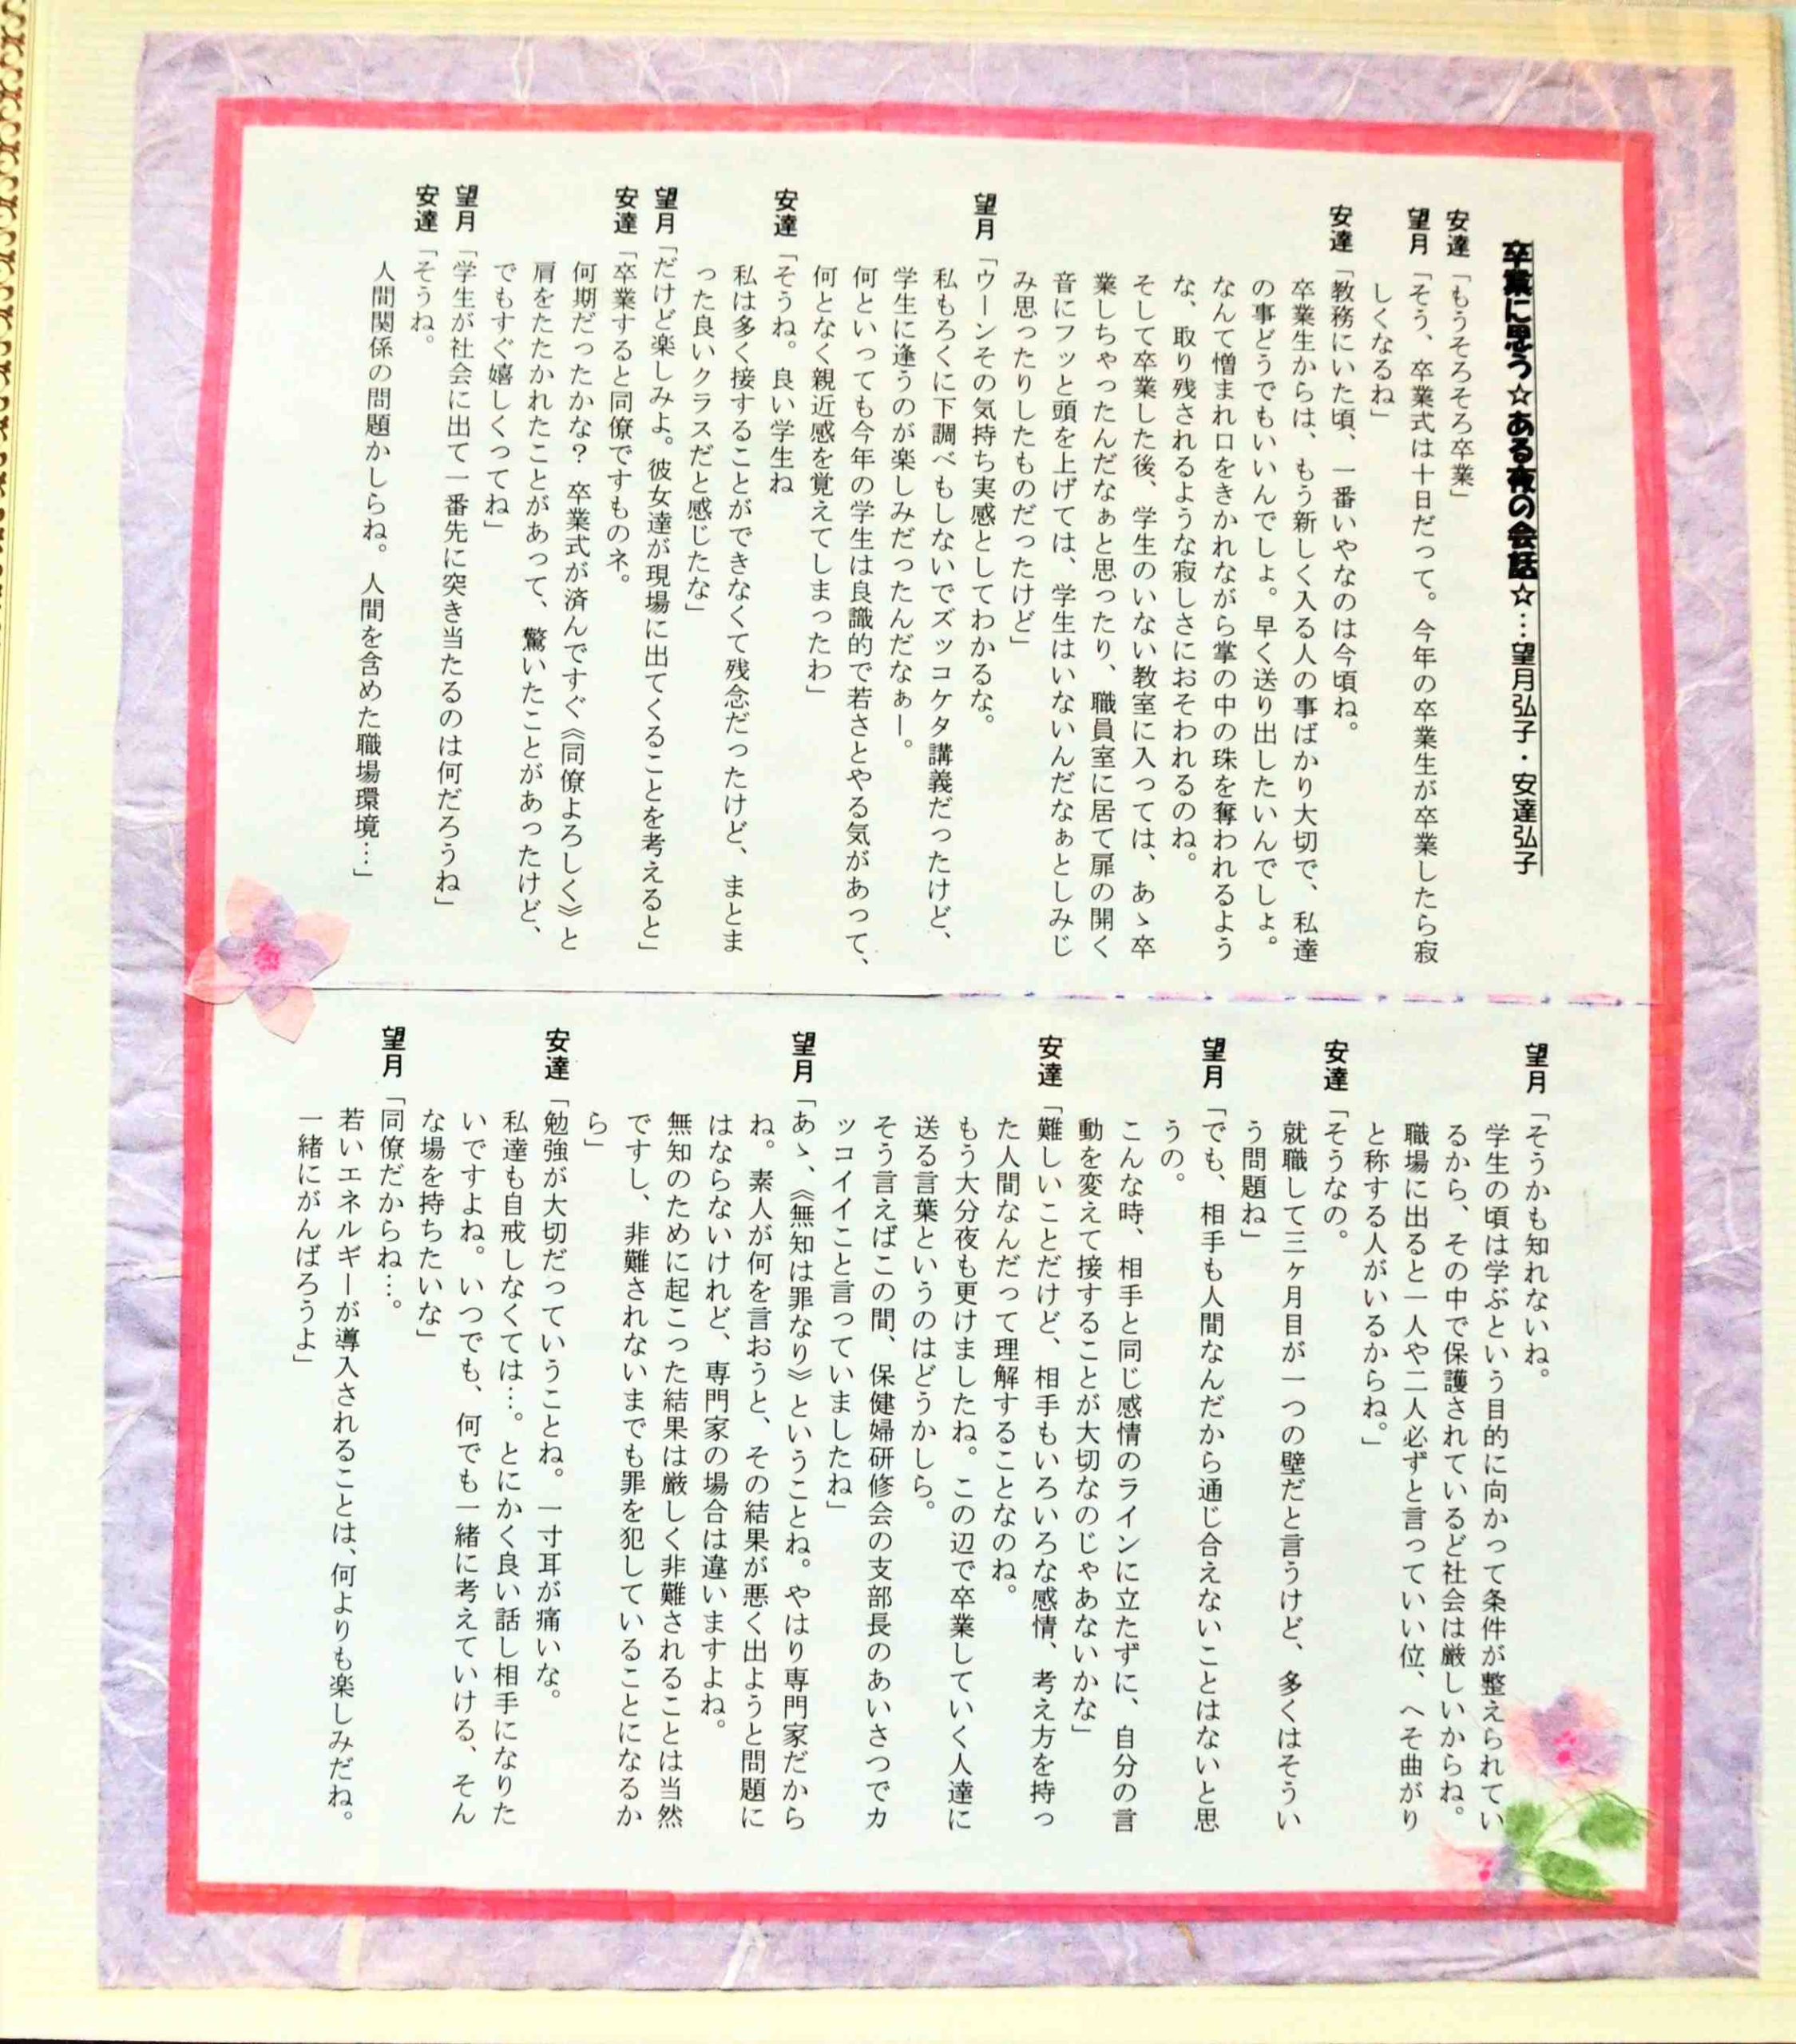 卒業に思う☆ある夜の会話☆…望月弘子・安達弘子
安達「もうそろそろ卒業」
望月「そう、卒業式は十日だって。今年の卒業生が卒業したら寂
しくなるね」
安達「教務にいた頃、一番いやなのは今頃ね。
卒業生からは、もう新しく入る人の事ばかり大切で、私達
の事どうでもいいんでしょ。早く送り出したいんでしょ。
なんて憎まれ口をきかれながら掌の中の珠を奪われるよう
な、取り残されるような寂しさにおそわれるのね。
そして卒業した後、学生のいない教室に入っては、あゝ卒
業しちゃったんだなぁと思ったり、職員室に居て扉の開く
音にフッと頭を上げては、学生はいないんだなぁとしみじ
み思ったりしたものだったけど」
望月「ウーンその気持ち実感としてわかるな。
私もろくに下調べもしないでズッコケタ講義だったけど、
学生に逢うのが楽しみだったんだなぁー。
何といっても今年の学生は良識的で若さとやる気があって、
何となく親近感を覚えてしまったわ」
安達「そうね。良い学生ね
私は多く接することができなくて残念だったけど、まとま
った良いクラスだと感じたな」
望月「だけど楽しみよ。彼女達が現場に出てくることを考えると」
安達「卒業すると同僚ですものネ。
何期だったかな？卒業式が済んですぐ《同僚よろしく》と
肩をたたかれたことがあって、驚いたことがあったけど、
でもすぐ嬉しくってね」
望月「学生が社会に出て一番先に突き当たるのは何だろうね」
安達「そうね。
人間関係の問題かしらね。人間を含めた職場環境…」
望月「そうかも知れないね。
学生の頃は学ぶという目的に向かって条件が整えられてい
るから、その中で保護されているど社会は厳しいからね。
職場に出ると一人や二人必ずと言っていい位、へそ曲がり
と称する人がいるからね。」
安達「そうなの。
就職して三ヶ月目が一つの壁だと言うけど、多くはそうい
う問題ね」
望月「でも、相手も人間なんだから通じ合えないことはないと思
うの。
こんな時、相手と同じ感情のラインに立たずに、自分の言
動を変えて接することが大切なのじゃあないかな」
安達「難しいことだけど、相手もいろいろな感情、考え方を持っ
た人間なんだって理解することなのね。
もう大分夜も更けましたね。この辺で卒業していく人達に
送る言葉というのはどうかしら。
そう言えばこの間、保健婦研修会の支部長のあいさつでカ
ッコイイこと言っていましたね」
望月「あゝ、《無知は罪なり》ということね。やはり専門家だから
ね。素人が何を言おうと、その結果が悪く出ようと問題に
はならないけれど、専門家の場合は違いますよね。
無知のために起こった結果は厳しく非難されることは当然
ですし、非難されないまでも罪を犯していることになるか
ら」
安達「勉強が大切だっていうことね。一寸耳が痛いな。
私達も自戒しなくては…。とにかく良い話し相手になりた
いですよね。いつでも、何でも一緒に考えていける、そん
な場を持ちたいな」
望月「同僚だからね…。
若いエネルギーが導入されることは、何よりも楽しみだね。
一緒にがんばろうよ」